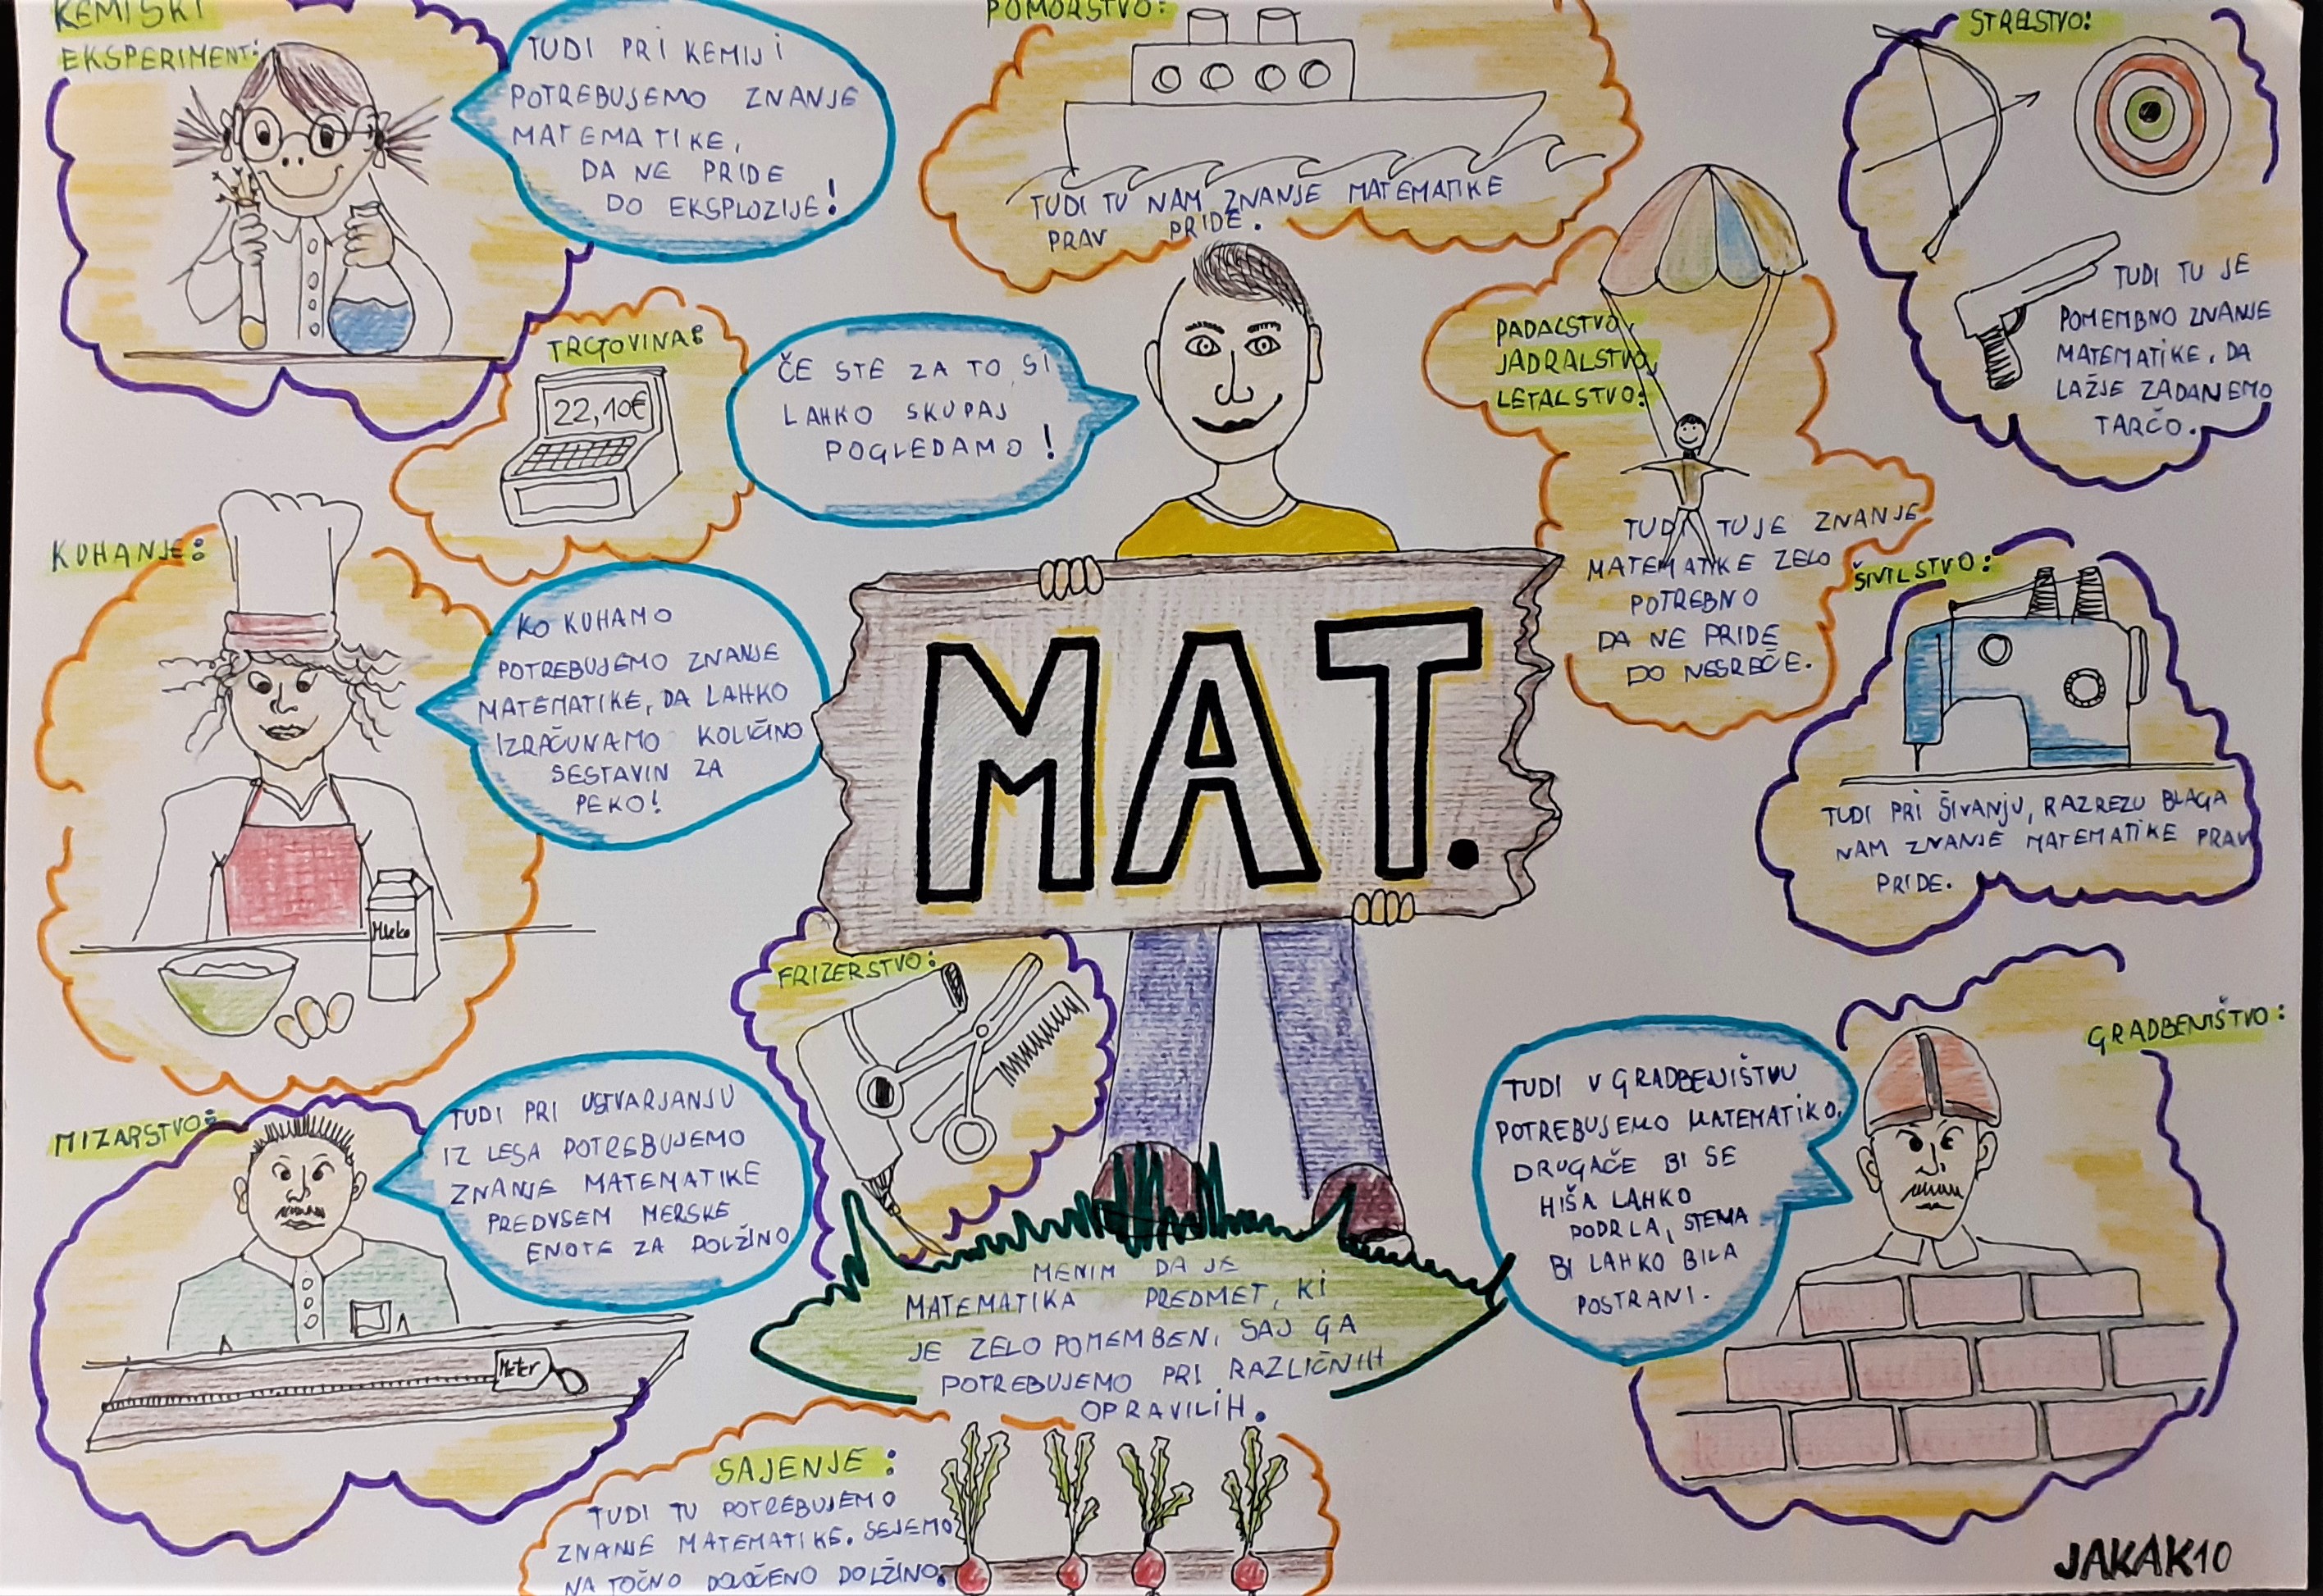 KEMIJSKI
EKSPERIMENT:
TUDI PRI KEMIJI
POTREBUJEMO ZNANJE
MATEMATIKE,
DA NE PRIDE
DO EKSPLOZIJE!
POMORSTVO:
TUDI TU NAM ZNANJE MATEMATIKE
PRAV PRIDE.
STRELSTVO:
TUDI TU JE
POMEMBNO ZNANJE
MATEMATIKE, DA
LAŽJE ZADANEMO
TARČO.
TRGOVINA:
22,10€
ČE STE ZA TO, SI
LAHKO SKUPAJ
POGLEDAMO!
PADALSTVO,
JADRALSTVO,
LETALSTVO:
TUDI TU JE ZNANJE
MATEMATIKE ZELO
POTREBNO
DA NE PRIDE
DO NESREČE.
KUHANJE:
KO KUHAMO
POTREBUJEMO ZNANJE
MATEMATIKE, DA LAHKO
IZRAČUNAMO KOLIČINO
SESTAVIN ZA
PEKO!
Mleko
MAT.
ŠIVILSTVO:
TUDI PRI ŠIVANJU, RAZREZU BLAGA
NAM ZNANJE MATEMATIKE PRAV
PRIDE.
FRIZERSTVO:
GRADBENIŠTVO:
TUDI V GRADBENIŠTVU
POTREBUJEMO MATEMATIKO,
DRUGAČE BI SE
HIŠA LAHKO
PODRLA, STENA
BI LAHKO BILA
POSTRANI.
MIZARSTVO:
TUDI PRI USTVARJANJU
IZ LESA POTREBUJEMO
ZNANJE MATEMATIKE
PREDVSEM MERSKE
ENOTE ZA DOLŽINO
Meter
MENIM DA JE
MATEMATIKA PREDMET, KI
JE ZELO POMEMBEN, SAJ GA
POTREBUJEMO PRI RAZLIČNIH
OPRAVILIH.
SAJENJE:
TUDI TU POTREBUJEMO
ZNANJE MATEMATIKE. SEJEMO
NA TOČNO DOLOČENO DOLŽINO.
JAKAK10